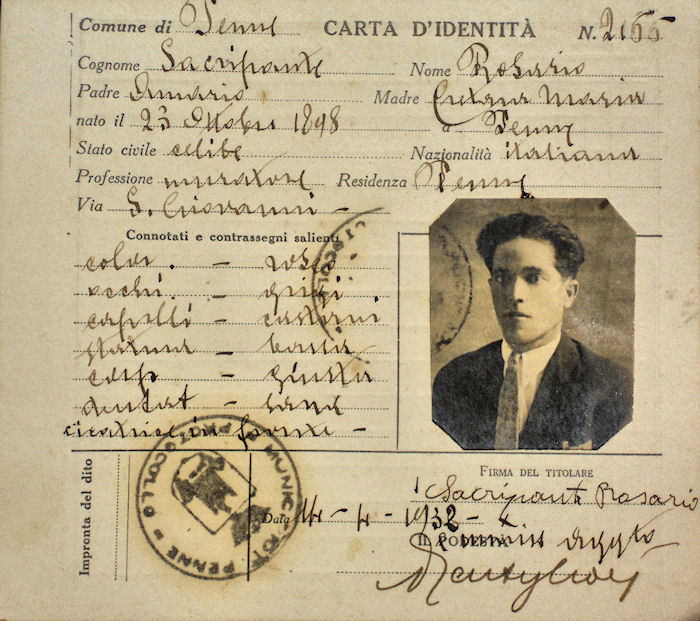 Comune di Penne CARTA D'IDENTITÀ N. 2166
Cognome Sacripante Nome Rosario
Padre Madre Maria
nato il 23 Ottobre 1898 a Penne
Stato civile celibe Nazionalità italiana
Professione muratore Residenza Penne
Via S. Giovanni -
Connotati e contrassegni salienti
color. - roseo
occhi. - grigi
capelli - castani
statura - bassa
corp - giusta
dentat - sana
cicatrice in fronte -
PROTOCOLLO
MUNIC. DI PENNE = PROTOCOLLO
Impronta del dito
FIRMA DEL TITOLARE
Sacripante Rosario
Data 14 - 4 - 1932 - X
IL PODESTÀ